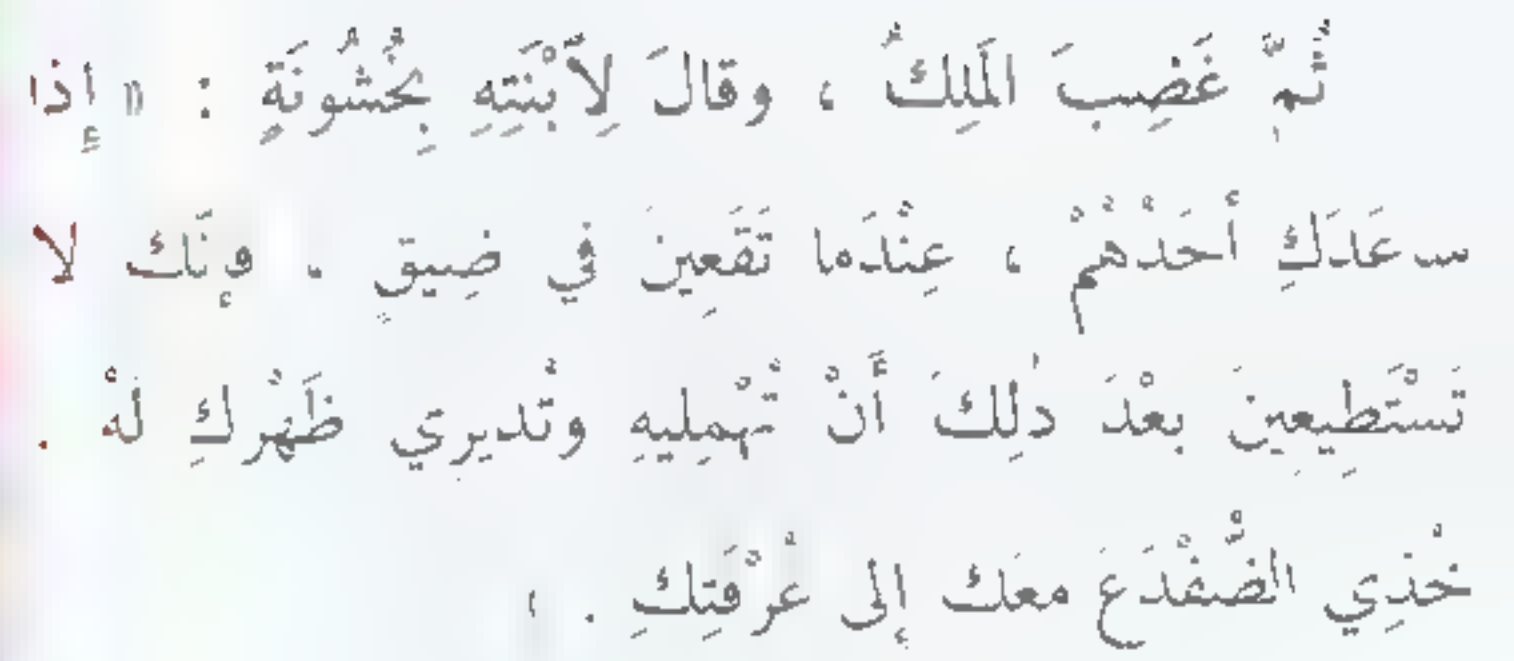 ثُمَّ غَضِبَ المَلِكُ ، وقالَ لِٱبْنَتِهِ بِخُشُونَةٍ : « إِذا
ساعَدَكِ أَحَدُهُمْ ، عِنْدَما تَقَعِينَ في ضِيقٍ ، فإِنَّكِ لا
تَسْتَطِيعِينَ بَعْدَ ذٰلِكَ أَنْ تُهْمِلِيهِ وتُدِيرِي ظَهْرَكِ لَهُ .
خُذِي الضُّفْدَعَ مَعَكِ إِلى غُرْفَتِكِ . »